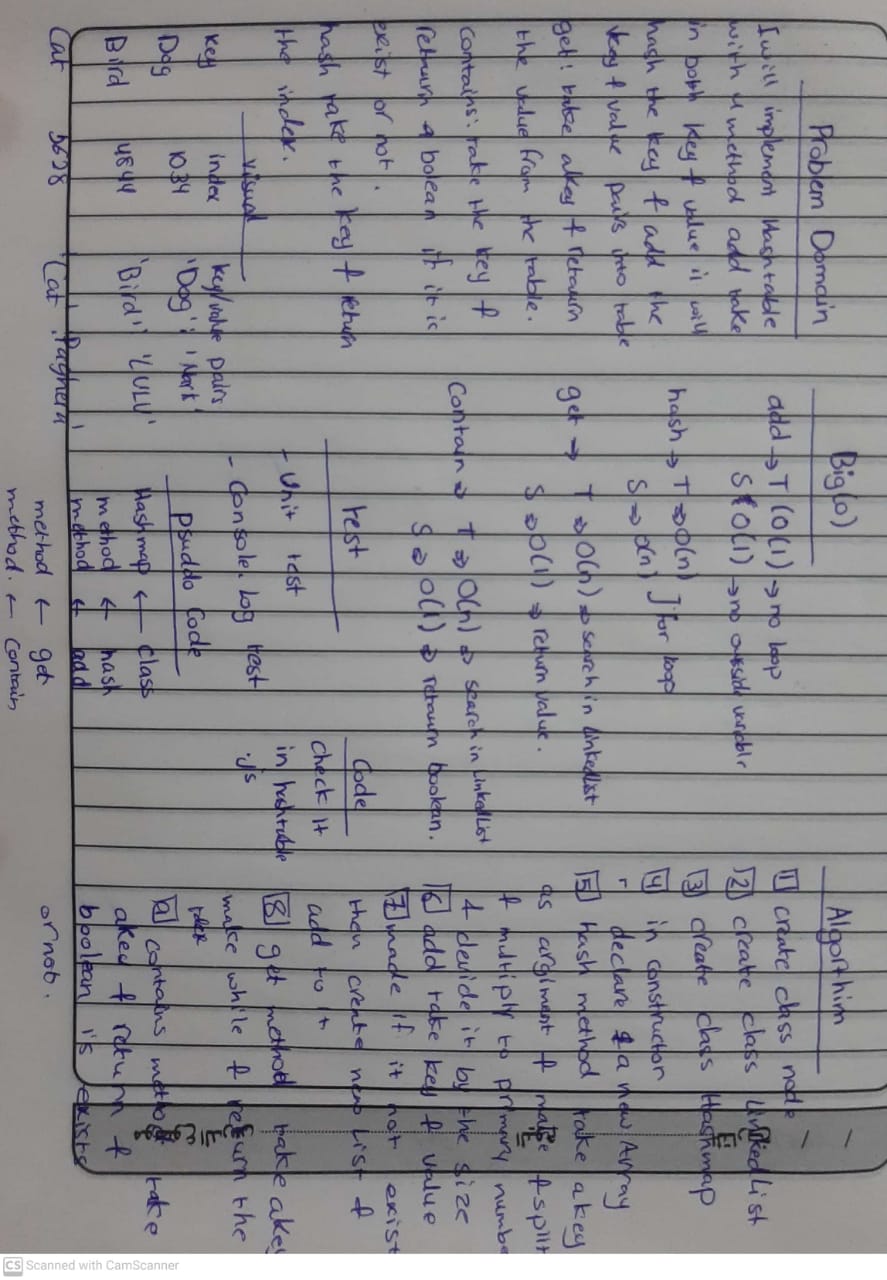 Problem Domain
I will implement Hashtable
with 4 method add take
in both key & value it will
hash the key & add the
key & value pairs into table
get: take akey & retaurn
the value from the table.
contains: take the key &
retaurn a bolean if it is
exist or not.
hash take the key & return
the index.
visual
key index key/value pairs
Dog 1034 'Dog': 'Mark'
Bird 4844 'Bird': 'LULU'
Cat 5678 'Cat'
Big(O)
add → T (O(1) → no loop
S O(1) → no outside variable
hash → T ⇒ O(n) ] for loop
S ⇒ O(n)
get → T ⇒ O(n) ⇒ search in linkedlist
S ⇒ O(1) ⇒ return value.
Contain ⇒ T ⇒ O(n) ⇒ search in linkedlist
S ⇒ O(1) ⇒ retaurn boolean.
test
- Unit test
- Console.log test
Psuddo Code
Hashmap ← class
method ← hash
method ← add
method ← get
method. ← contain
Code
check it
in hashtable
.js
Algorthim
1 create class node
2 create class LinkedList
3 create class Hashmap
4 in constructor
declare a new Array
5 hash method take akey
as argiment & make & split
& multiply to primary numbe
& devide it by the size
6 add take key & value
7 made if it not exist
then create new list &
add to it
8 get method take akey
make while & return the
9 contains method take
akey & return &
boolean is exists
or not.
CS Scanned with CamScanner